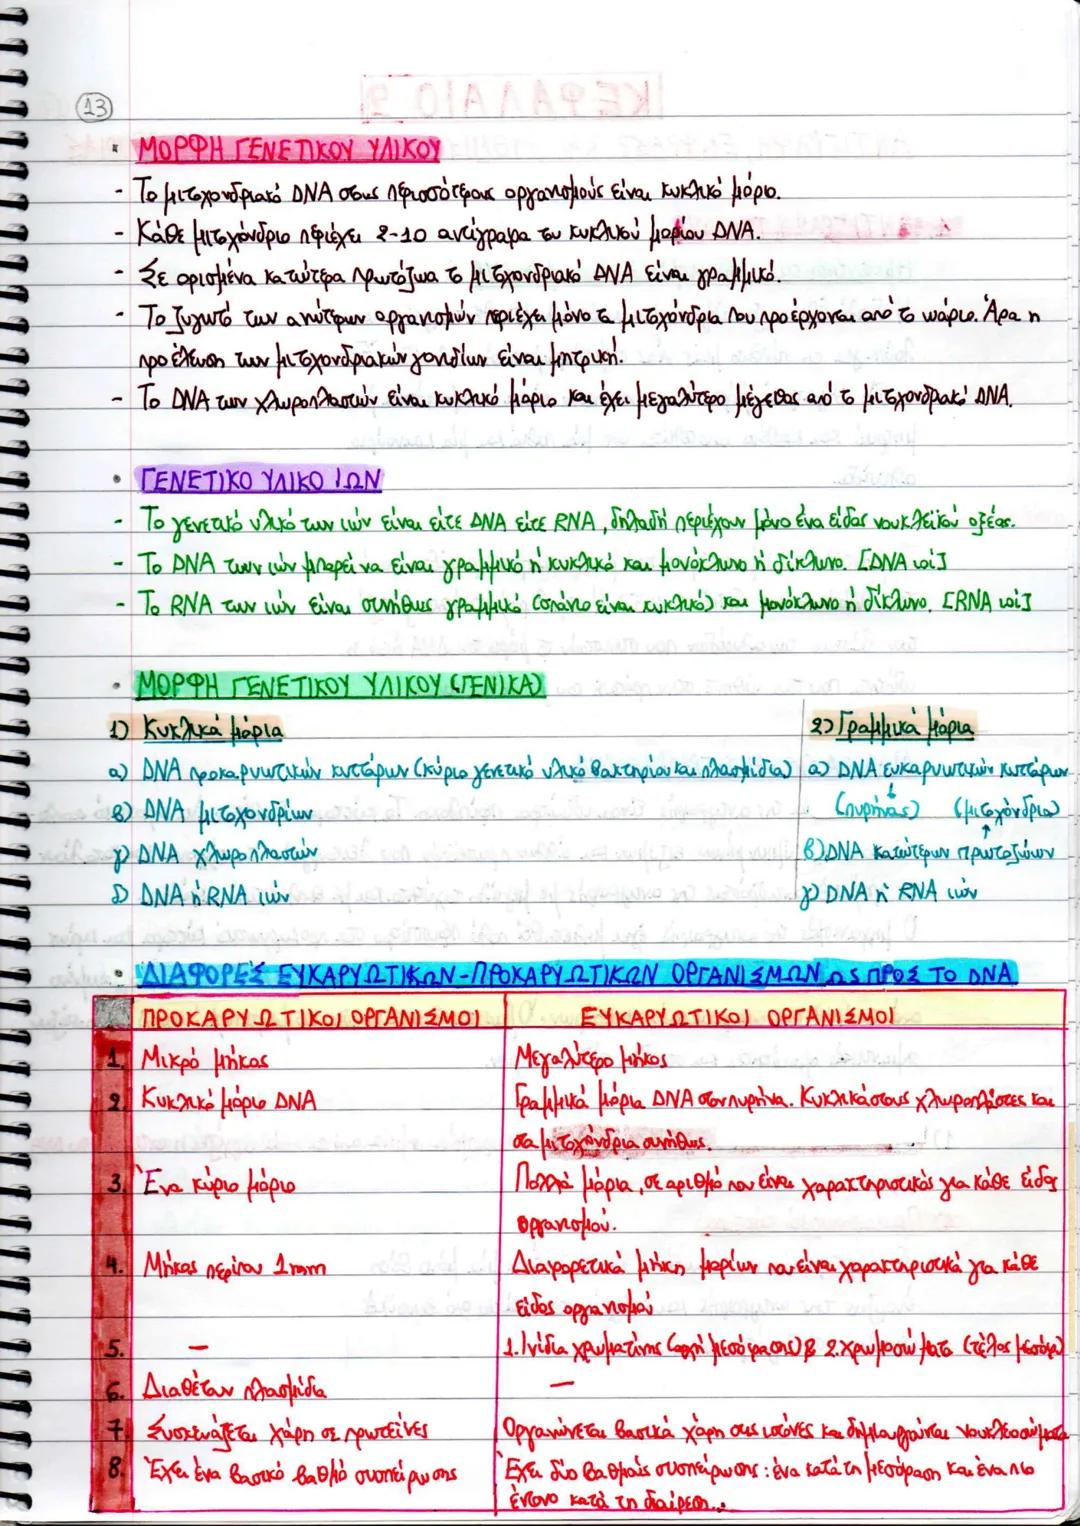 13
ΜΟΡΦΗ ΓΕΝΕΤΙΚΟΥ ΥΛΙΚΟΥ
- Το μιτοχονδριακό DNA στους περισσότερους οργανισμούς είναι κυκλικό μόριο.
- Κάθε μιτοχόνδριο περιέχει 2-10 αντίγραφα του κυκλικού μορίου DNA.
- Σε ορισμένα κατώτερα πρωτόζωα το μιτοχονδριακό DNA είναι γραμμικό.
- Το ζυγωτό των ανώτερων οργανισμών περιέχει μόνο τα μιτοχόνδρια που προέρχονται από το ωάριο. Άρα η
προέλευση των μιτοχονδριακών γονιδίων είναι μητρική.
- Το DNA των χλωροπλαστών είναι κυκλικό μόριο και έχει μεγαλύτερο μέγεθος από το μιτοχονδριακό DNA.
• ΓΕΝΕΤΙΚΟ ΥΛΙΚΟ ΙΩΝ
- Το γενετικό υλικό των ιών είναι είτε DNA είτε RNA, δηλαδή περιέχουν μόνο ένα είδος νουκλεϊκού οξέος.
- Το DNA των ιών μπορεί να είναι γραμμικό ή κυκλικό και μονόκλωνο ή δίκλωνο. [DNA ιοί]
- Το RNA των ιών είναι συνήθως γραμμικό (σπάνια είναι κυκλικό) και μονόκλωνο ή δίκλωνο. [RNA ιοί]
• ΜΟΡΦΗ ΓΕΝΕΤΙΚΟΥ ΥΛΙΚΟΥ (ΓΕΝΙΚΑ)
1) Κυκλικά μόρια
α) DNA προκαρυωτικών κυττάρων (κύριο γενετικό υλικό βακτηρίου και πλασμίδια)
β) DNA μιτοχονδρίων
γ) DNA χλωροπλαστών
δ) DNA ή RNA ιών
2) Γραμμικά μόρια
α) DNA ευκαρυωτικών κυττάρων
(πυρήνας) (μιτοχόνδρια)
β) DNA κατώτερων πρωτοζώων
γ) DNA ή RNA ιών
• ΔΙΑΦΟΡΕΣ ΕΥΚΑΡΥΩΤΙΚΩΝ-ΠΡΟΚΑΡΥΩΤΙΚΩΝ ΟΡΓΑΝΙΣΜΩΝ ΩΣ ΠΡΟΣ ΤΟ DNA
ΠΡΟΚΑΡΥΩΤΙΚΟΙ ΟΡΓΑΝΙΣΜΟΙ ΕΥΚΑΡΥΩΤΙΚΟΙ ΟΡΓΑΝΙΣΜΟΙ
1. Μικρό μήκος Μεγαλύτερο μήκος
2. Κυκλικό μόριο DNA Γραμμικά μόρια DNA στον πυρήνα. Κυκλικά στους χλωροπλάστες και
στα μιτοχόνδρια συνήθως.
3. Ένα κύριο μόριο Πολλά μόρια, σε αριθμό που είναι χαρακτηριστικός για κάθε είδος
οργανισμού.
4. Μήκος περίπου 1mm Διαφορετικά μήκη μορίων που είναι χαρακτηριστικά για κάθε
είδος οργανισμού
5. — 1. Ινίδια χρωματίνης (αρχή μεσόφασης) & 2. χρωμοσώματα (τέλος μεσόφ)
6. Διαθέτουν πλασμίδια —
7. Συσκευάζεται χάρη σε πρωτεΐνες Οργανώνεται βασικά χάρη στις ιστόνες και δημιουργούνται νουκλεοσώματα
8. Έχει ένα βασικό βαθμό συσπείρωσης Έχει δύο βαθμούς συσπείρωσης: ένα κατά τη μεσόφαση και ένα πιο
έντονο κατά τη διαίρεση..